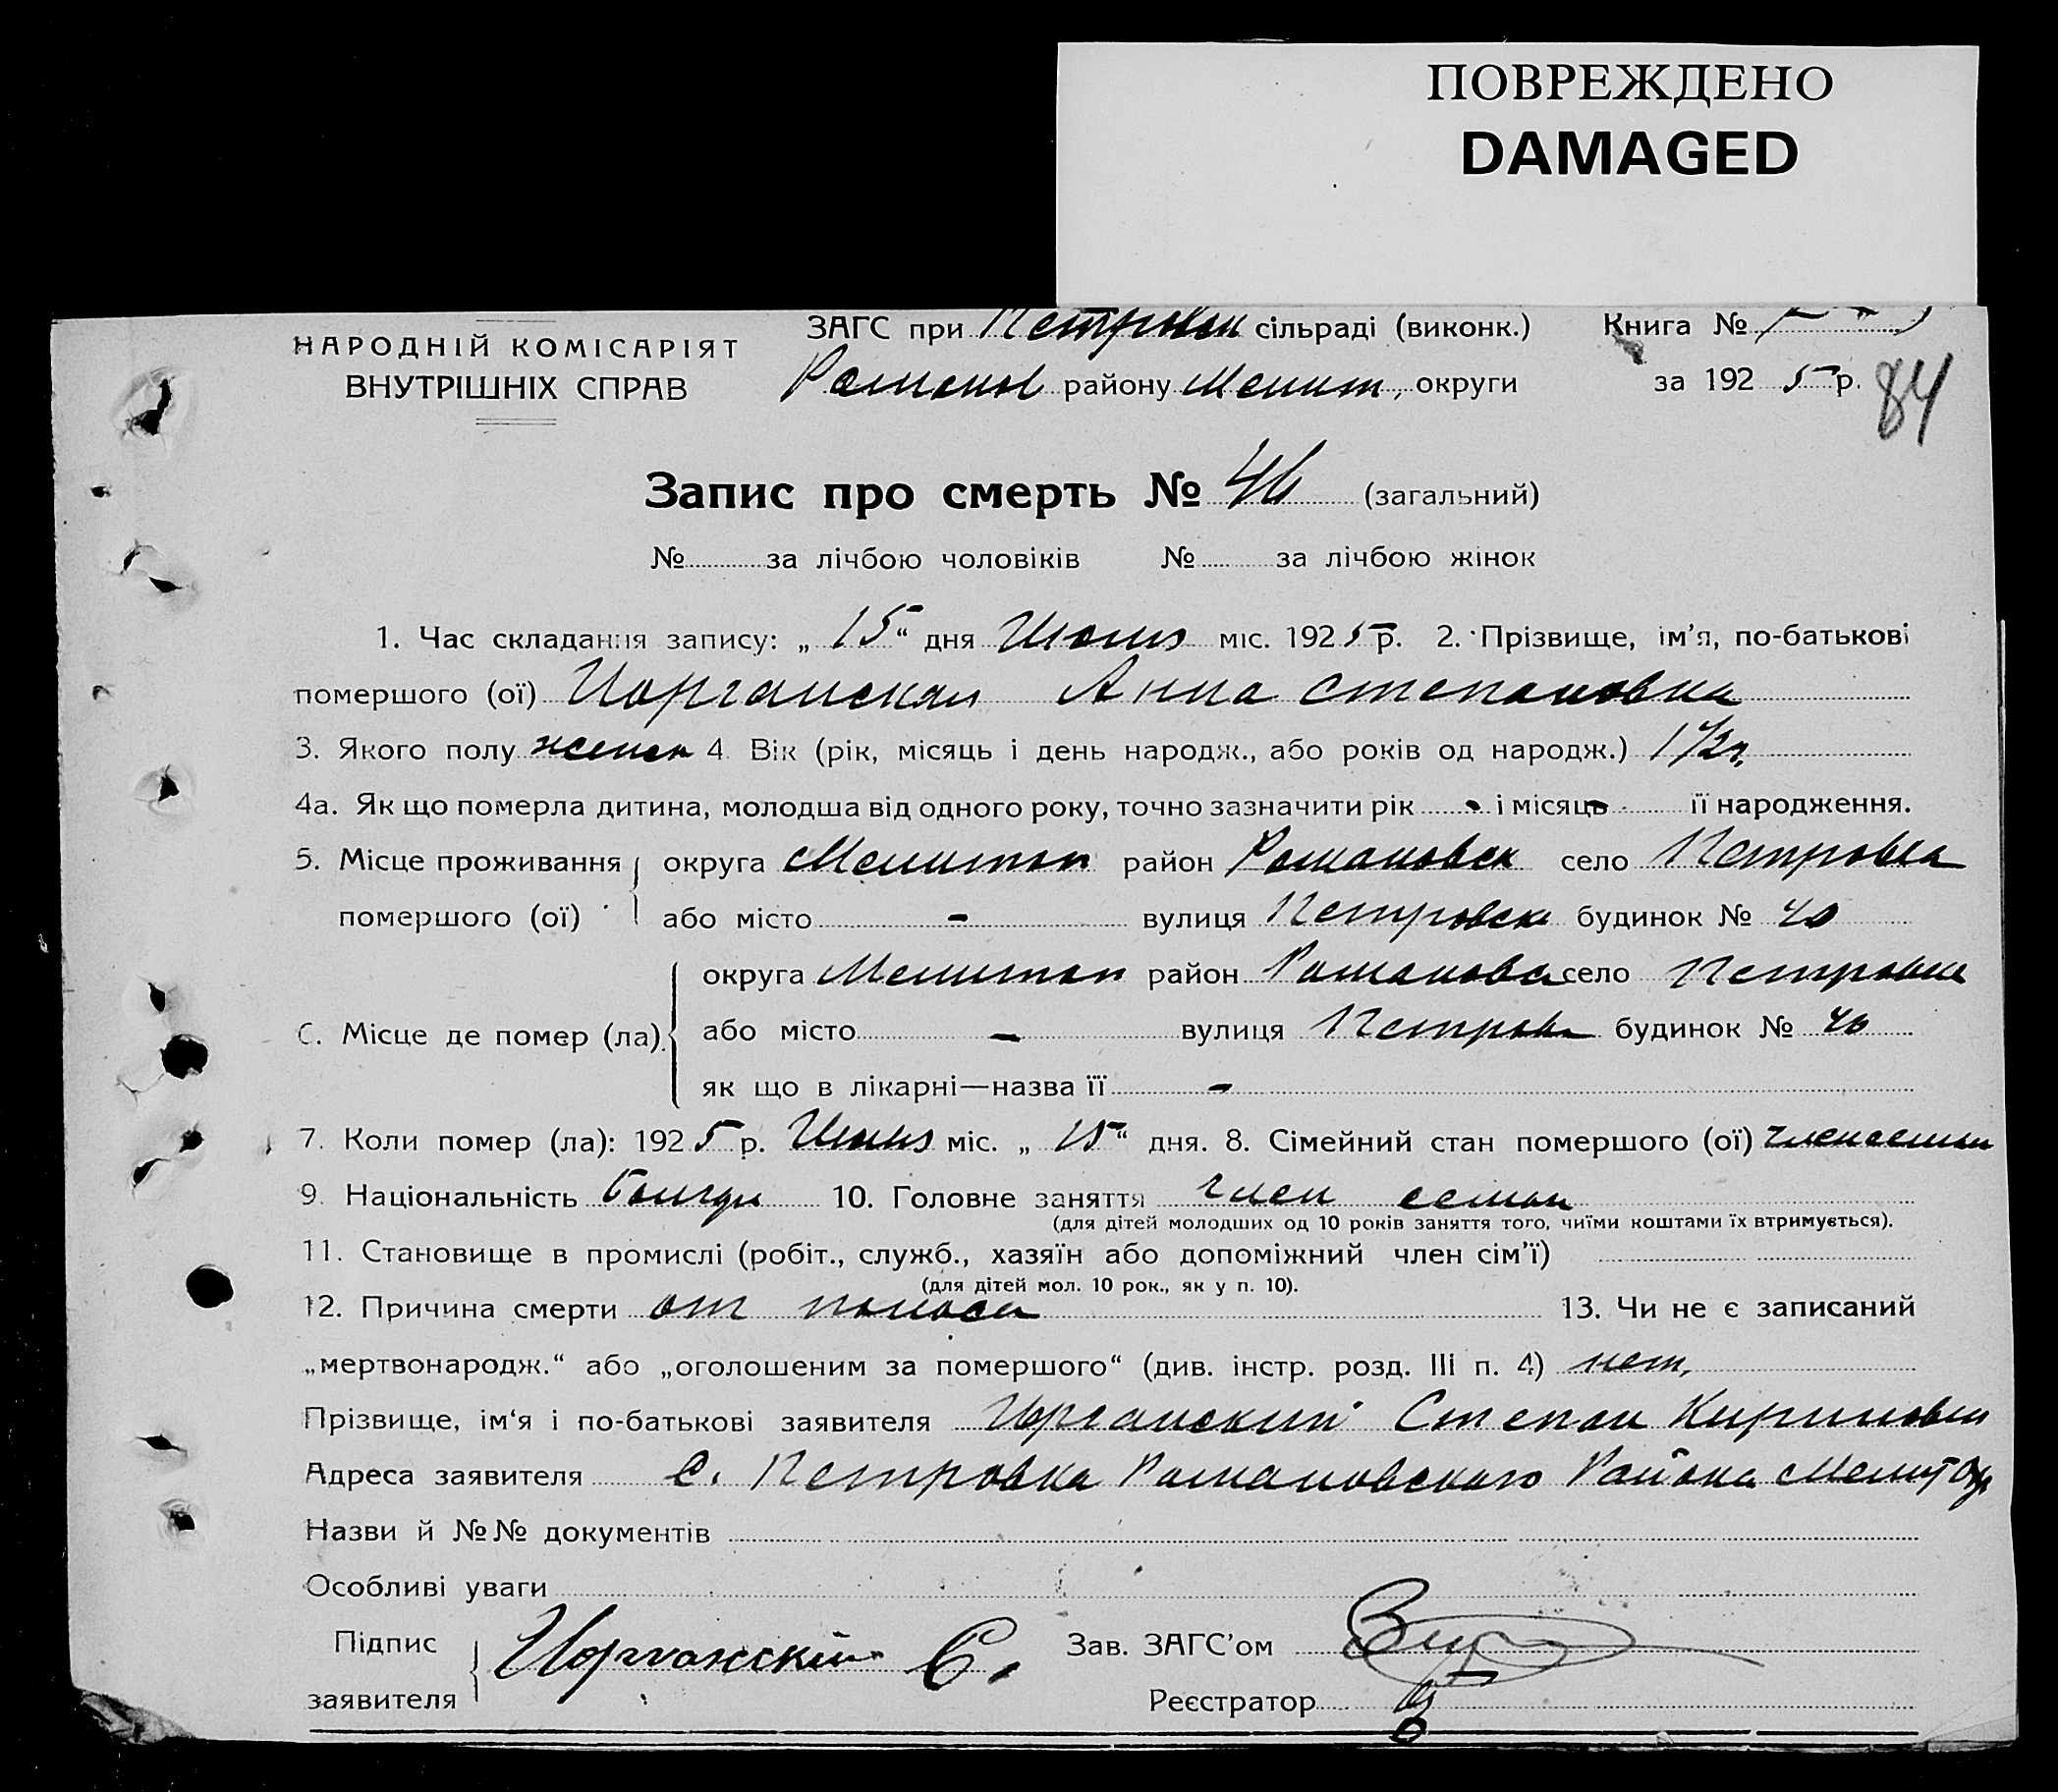 ПОВРЕЖДЕНО
DAMAGED
НАРОДНІЙ КОМІСАРІЯТ
ВНУТРІШНІХ СПРАВ
ЗАГС при Петровск сільраді (виконк.)
Романов району Мелит, округи
Книга №
за 1925 р.
84
Запис про смерть № 46 (загальний)
№ за лічбою чоловіків № за лічбою жінок
1. Час складання запису: „15“ дня Июня міс. 1925 р. 2. Прізвище, ім’я, по-батькові
помершого (ої) Иорганская Анна Степановна
3. Якого полу женск 4. Вік (рік, місяць і день народж., або років од народж.) 1 1/2 г.
4а. Як що померла дитина, молодша від одного року, точно зазначити рік - і місяць - її народження.
5. Місце проживання помершого (ої) округа Мелитоп район Романовск село Петровка
або місто - вулиця Петровск будинок № 40
6. Місце де помер (ла) округа Мелитоп район Романовск село Петровка
або місто - вулиця Петровск будинок № 40
як що в лікарні—назва її -
7. Коли помер (ла): 1925 р. Июня міс. „15“ дня. 8. Сімейний стан помершого (ої) член семьи
9. Національність Болгар 10. Головне заняття член семьи
(для дітей молодших од 10 років заняття того, чиїми коштами їх втримується).
11. Становище в промислі (робіт., служб., хазяїн або допоміжний член сім’ї)
(для дітей мол. 10 рок., як у п. 10).
12. Причина смерти от поноса 13. Чи не є записаний
„мертвонародж.“ або „оголошеним за помершого“ (див. інстр. розд. III п. 4) нет,
Прізвище, ім‘я і по-батькові заявителя Иорганский Степан Кирилович
Адреса заявителя с. Петровка Романовского Района Мелит Окр
Назви й №№ документів
Особливі уваги
Підпис заявителя Иорганский С.
Зав. ЗАГС’ом
Реєстратор